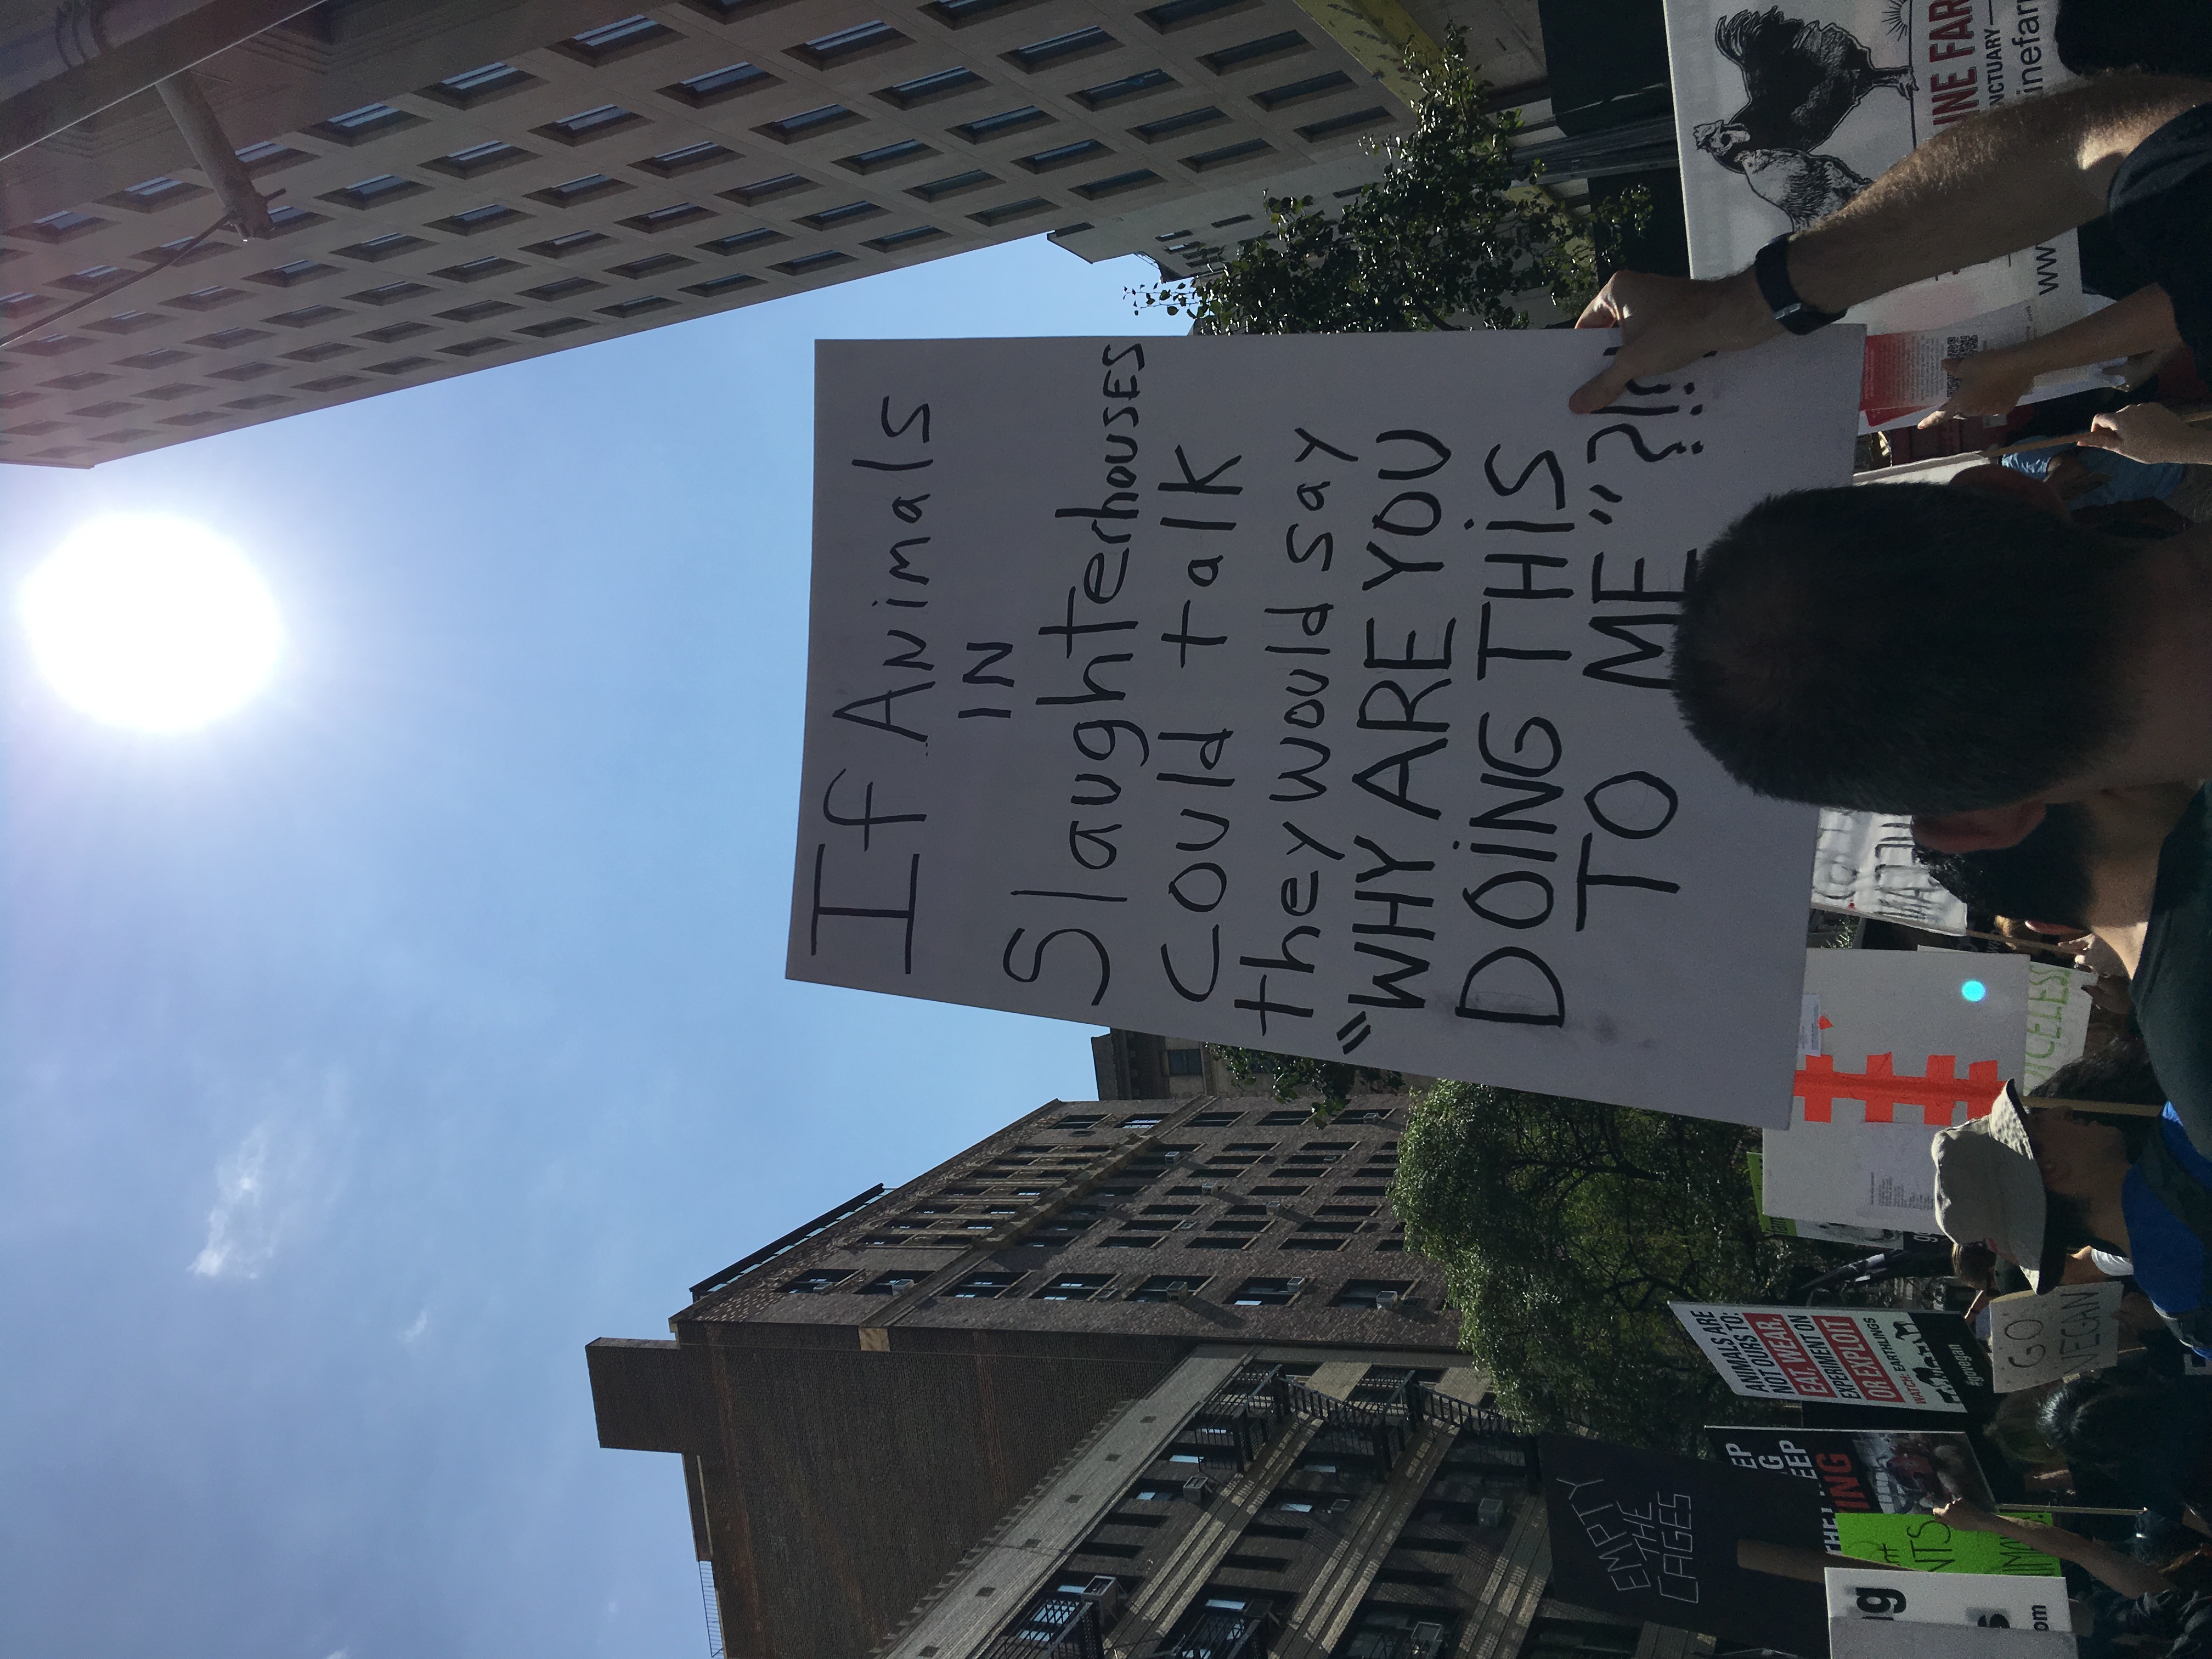 If Animals
IN
Slaughterhouses
could talk
they would say
"WHY ARE YOU
DOING THIS
TO ME"?!?
EMPTY
THE
CAGES
ANIMALS ARE
NOT OURS TO:
EAT, WEAR,
EXPERIMENT ON
OR EXPLOIT
WATCH: EARTHLINGS
#govegan
EP
G
EEP
ING
g
s
om
NTS
GO
VEGAN
OICELESS
INE FAR
NCTUARY
ww
inefar